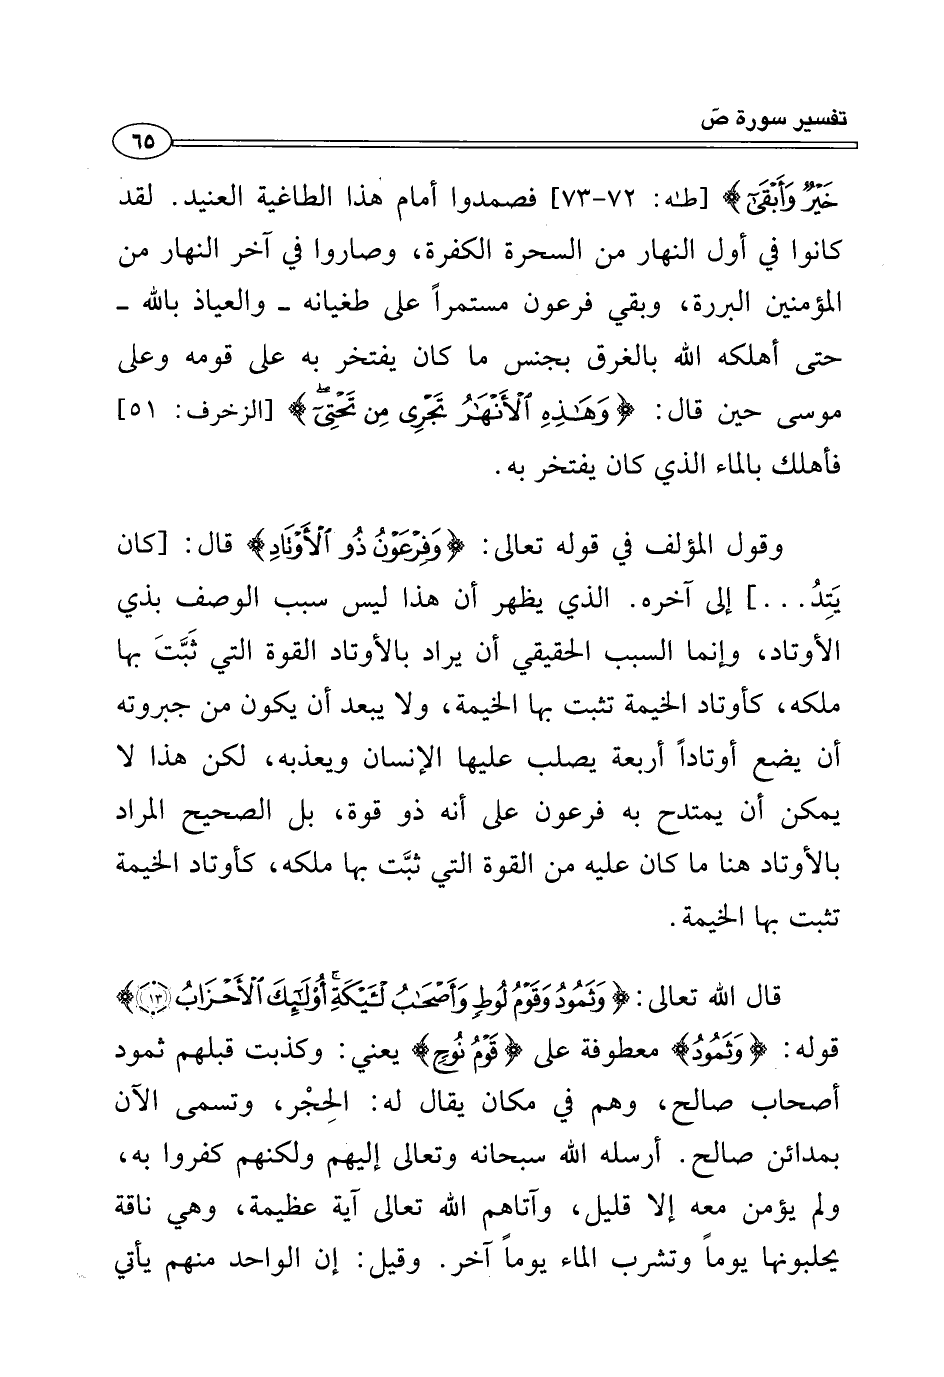 تفسير سورة صَ
٦٥
خَيْرٌ وَأَبْقَىٰٓ﴾ [طه: ٧٢-٧٣] فصمدوا أمام هذا الطاغية العنيد. لقد
كانوا في أول النهار من السحرة الكفرة، وصاروا في آخر النهار من
المؤمنين البررة، وبقي فرعون مستمراً على طغيانه ـ والعياذ بالله ـ
حتى أهلكه الله بالغرق بجنس ما كان يفتخر به على قومه وعلى
موسى حين قال: ﴿وَهَـٰذِهِ ٱلْأَنْهَـٰرُ تَجْرِى مِن تَحْتِىٓ ۖ﴾ [الزخرف: ٥١]
فأهلك بالماء الذي كان يفتخر به.
وقول المؤلف في قوله تعالى: ﴿وَفِرْعَوْنُ ذُو ٱلْأَوْتَادِ﴾ قال: [كان
يَتِدُ...] إلى آخره. الذي يظهر أن هذا ليس سبب الوصف بذي
الأوتاد، وإنما السبب الحقيقي أن يراد بالأوتاد القوة التي ثَبَّتَ بها
ملكه، كأوتاد الخيمة تثبت بها الخيمة، ولا يبعد أن يكون من جبروته
أن يضع أوتاداً أربعة يصلب عليها الإنسان ويعذبه، لكن هذا لا
يمكن أن يمتدح به فرعون على أنه ذو قوة، بل الصحيح المراد
بالأوتاد هنا ما كان عليه من القوة التي ثبَّت بها ملكه، كأوتاد الخيمة
تثبت بها الخيمة.
قال الله تعالى: ﴿وَثَمُودُ وَقَوْمُ لُوطٍ وَأَصْحَـٰبُ لْـَٔيْكَةِ ۚ أُو۟لَـٰٓئِكَ ٱلْأَحْزَابُ (١٣)﴾
قوله: ﴿وَثَمُودُ﴾ معطوفة على ﴿قَوْمُ نُوحٍ﴾ يعني: وكذبت قبلهم ثمود
أصحاب صالح، وهم في مكان يقال له: الحِجْر، وتسمى الآن
بمدائن صالح. أرسله الله سبحانه وتعالى إليهم ولكنهم كفروا به،
ولم يؤمن معه إلا قليل، وآتاهم الله تعالى آية عظيمة، وهي ناقة
يحلبونها يوماً وتشرب الماء يوماً آخر. وقيل: إن الواحد منهم يأتي